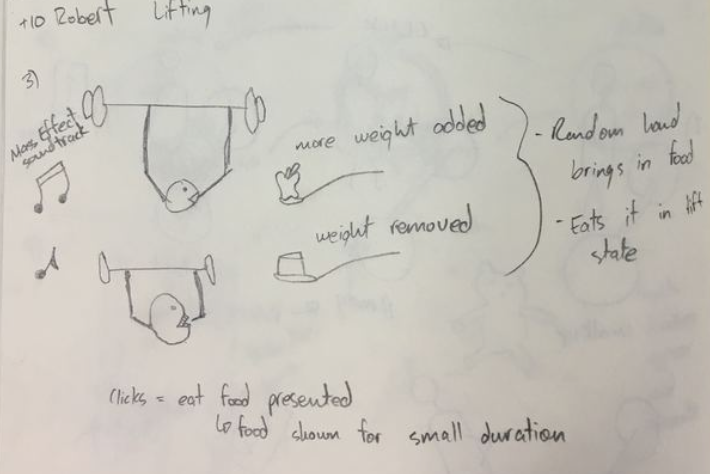 +10 Robert Lifting
3)
Mass Effect
soundtrack
more weight added
weight removed
- Random hand
brings in food
- Eats it in lift
state
Clicks = eat food presented
↳ food shown for small duration